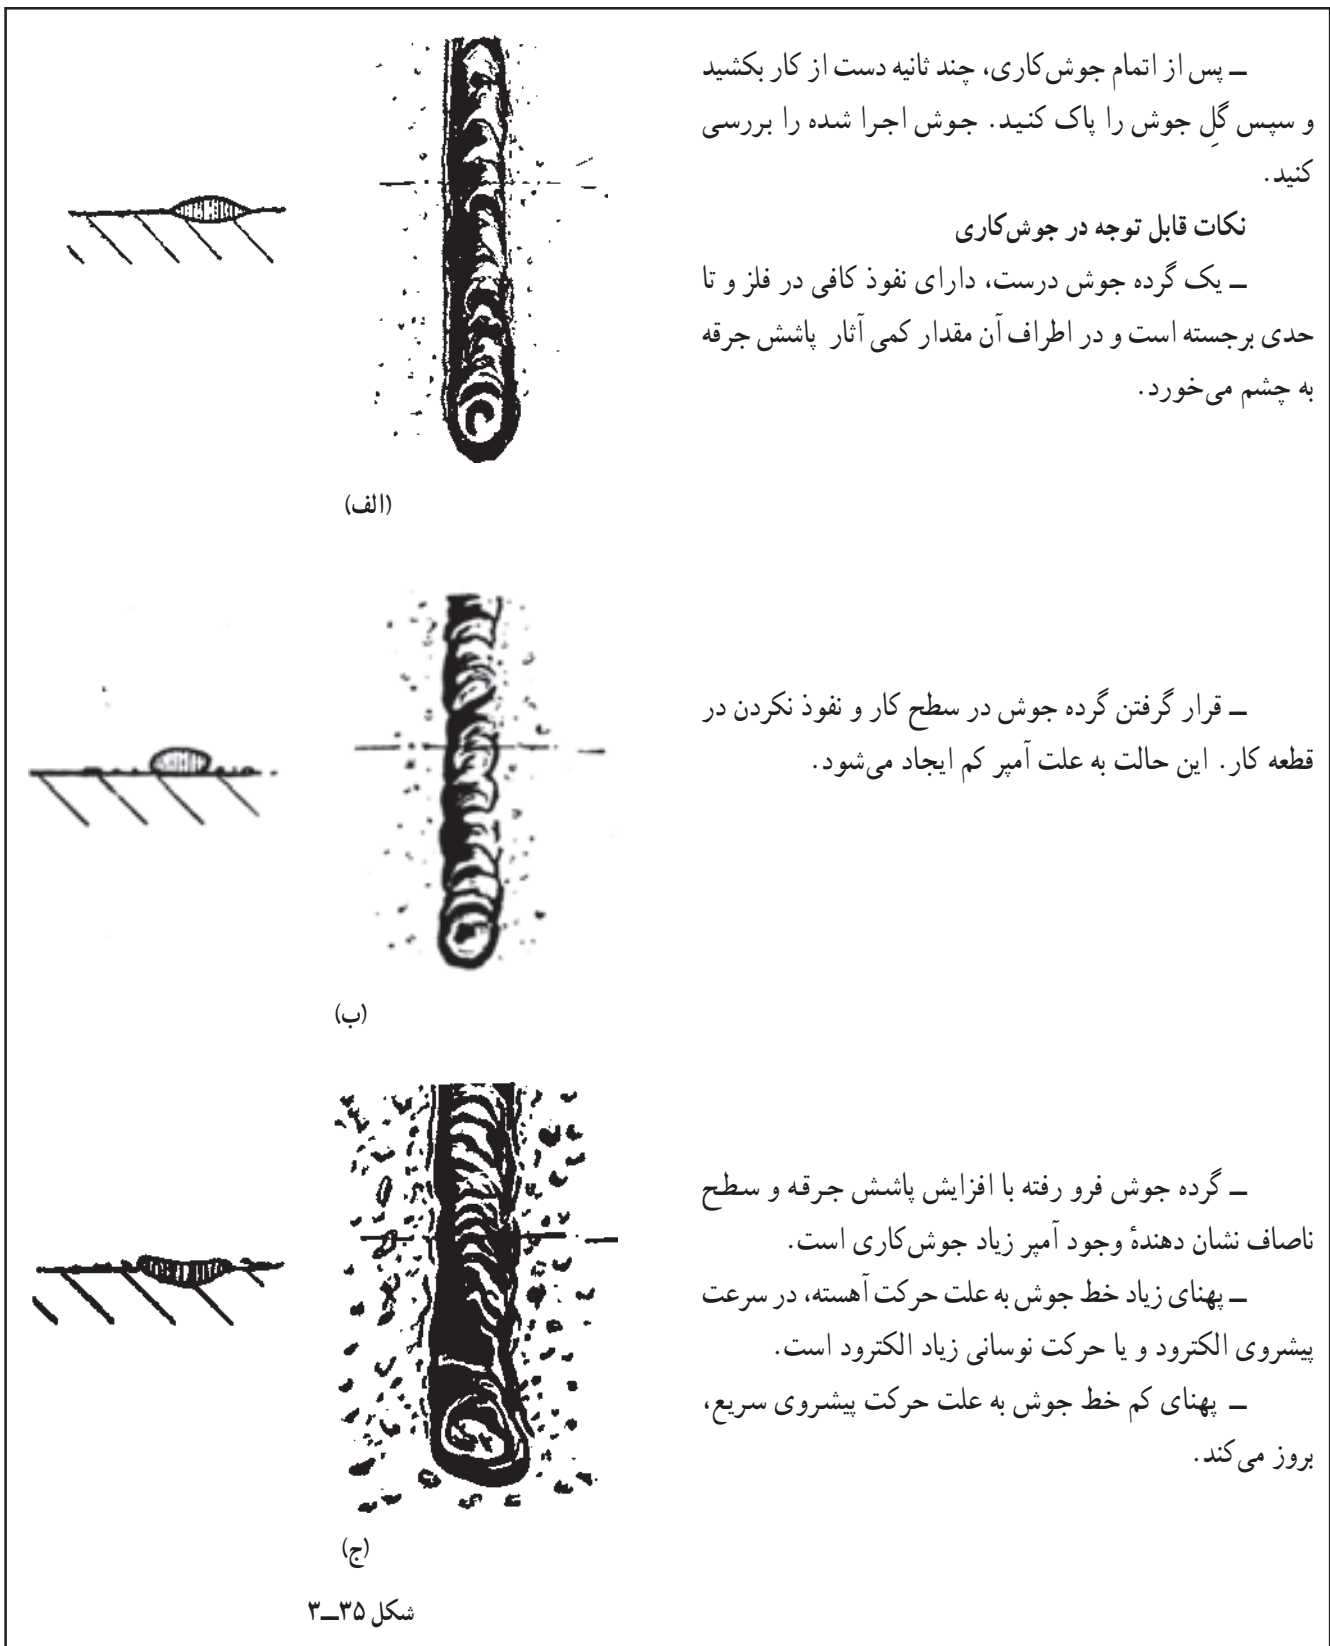 ــ پس از اتمام جوش‌کاری، چند ثانیه دست از کار بکشید
و سپس گلِ جوش را پاک کنید. جوش اجرا شده را بررسی
کنید.
نکات قابل توجه در جوش‌کاری
ــ یک گرده جوش درست، دارای نفوذ کافی در فلز و تا
حدی برجسته است و در اطراف آن مقدار کمی آثار پاشش جرقه
به چشم می‌خورد.
(الف)
ــ قرار گرفتن گرده جوش در سطح کار و نفوذ نکردن در
قطعه کار. این حالت به علت آمپر کم ایجاد می‌شود.
(ب)
ــ گرده جوش فرو رفته با افزایش پاشش جرقه و سطح
ناصاف نشان دهندۀ وجود آمپر زیاد جوش‌کاری است.
ــ پهنای زیاد خط جوش به علت حرکت آهسته، در سرعت
پیشروی الکترود و یا حرکت نوسانی زیاد الکترود است.
ــ پهنای کم خط جوش به علت حرکت پیشروی سریع،
بروز می‌کند.
(ج)
شکل ۳۵ــ۳